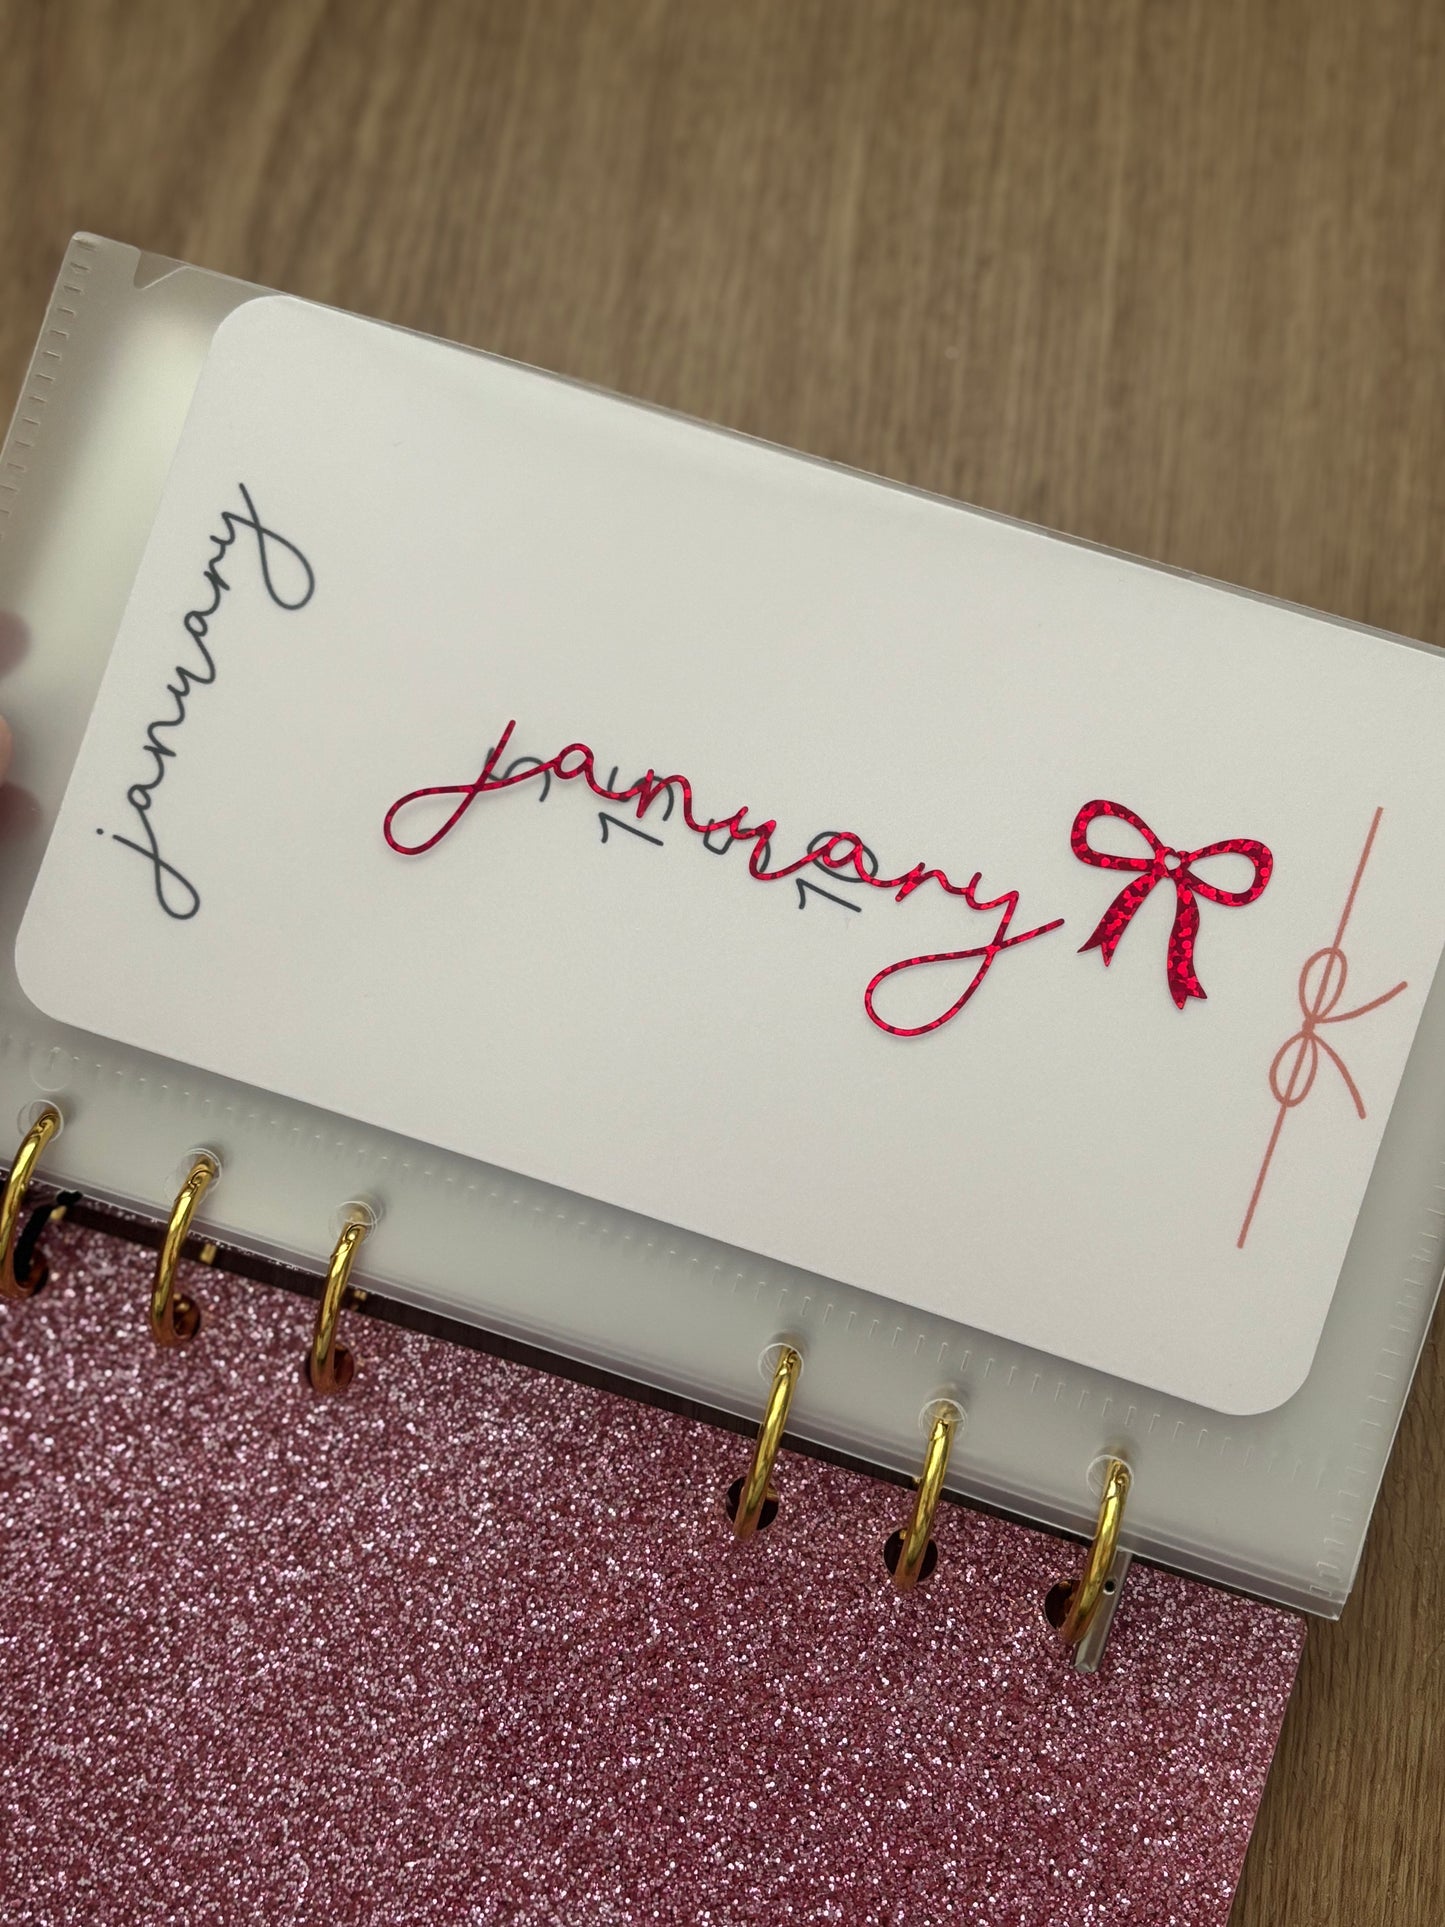 january
january